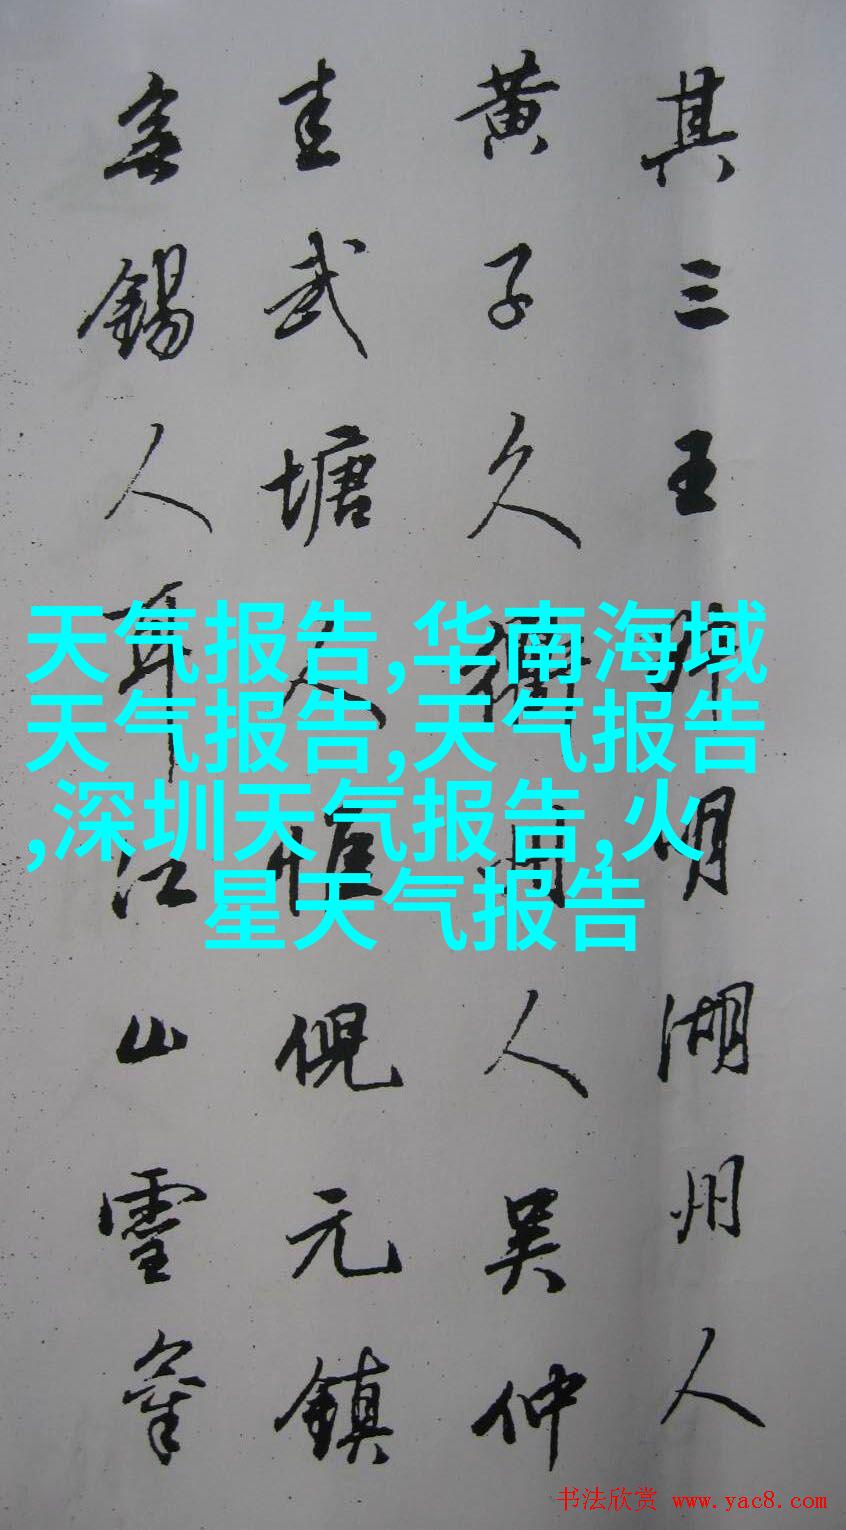 其三王明湖州人
黄子久衢州人吴仲
圭武塘人惟倪元鎮
無錫人耳江山靈氣
天气报告,华南海域
天气报告,天气报告
,深圳天气报告,火
星天气报告
书法欣赏 www.yac8.com